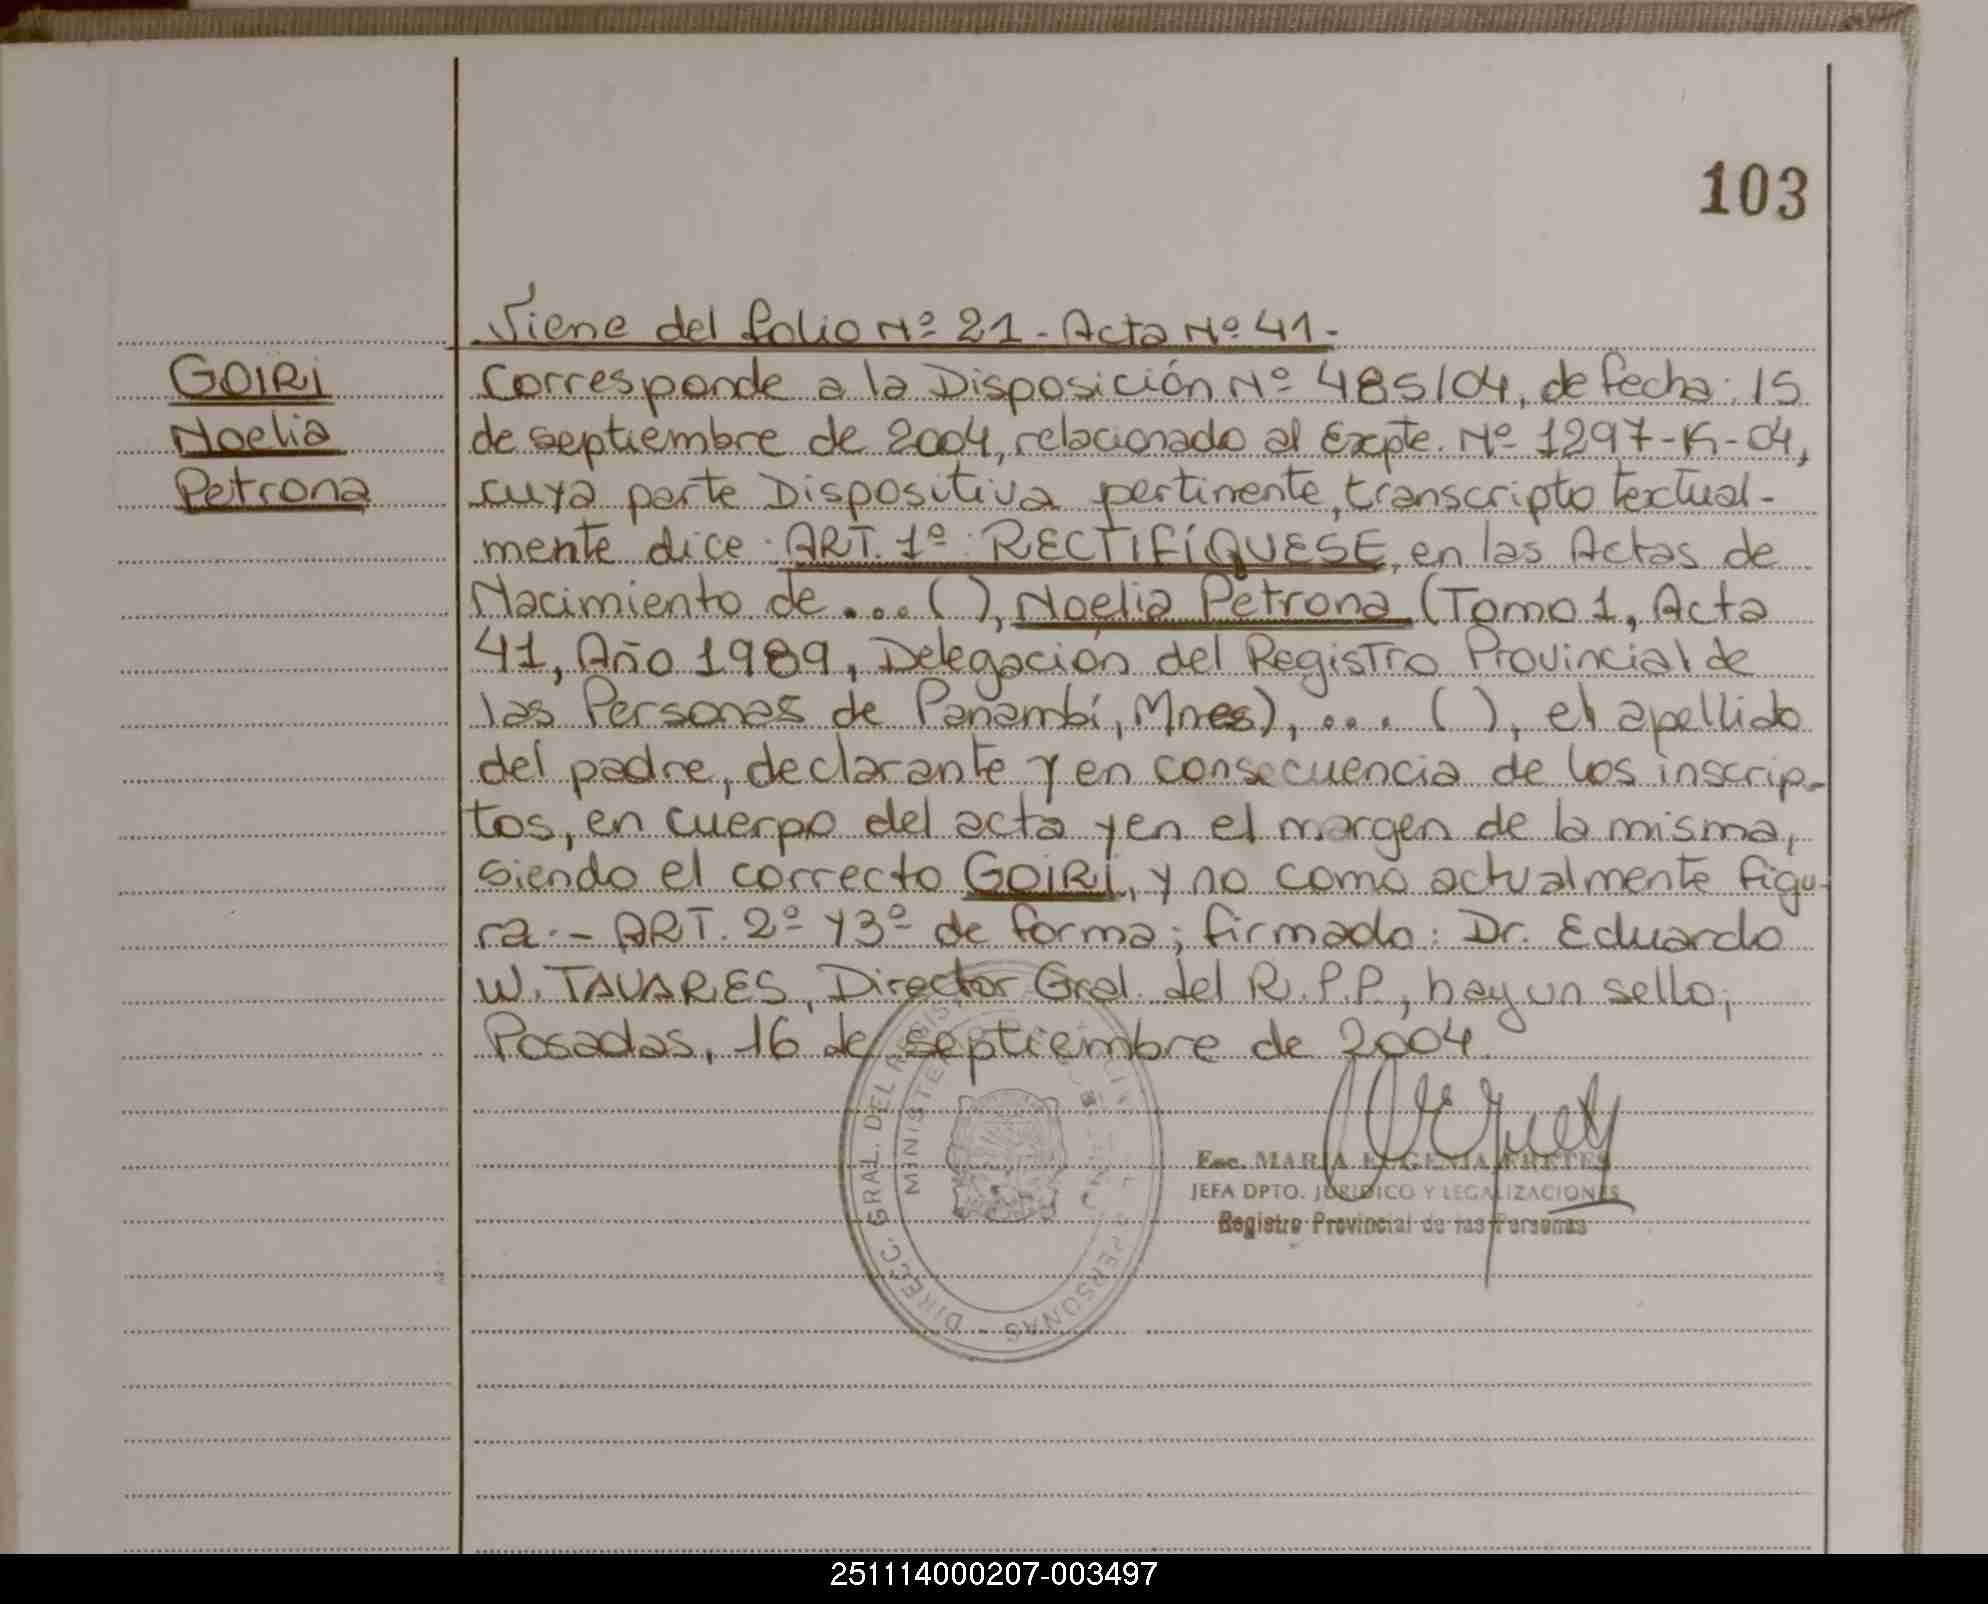 103
Viene del folio Nº 21 - Acta Nº 41 -
GOIRI
Noelia
Petrona
Corresponde a la Disposición Nº 485/04, de fecha: 15
de septiembre de 2004, relacionado al Expte. Nº 1297-K-04,
cuya parte Dispositiva pertinente, transcripto textual-
mente dice: ART. 1º: RECTIFÍQUESE, en las Actas de
Nacimiento de .... ( ), Noelia Petrona (Tomo 1, Acta
41, Año 1989, Delegación del Registro Provincial de
las Personas de Panambí, Mnes), .... ( ), el apellido
del padre, declarante y en consecuencia de los inscrip-
tos, en cuerpo del acta y en el margen de la misma,
siendo el correcto GOIRI, y no como actualmente figu-
ra.- ART. 2º y 3º de forma; firmado: Dr. Eduardo
W. TAVARES, Director Gral. del R.P.P., hay un sello;
Posadas, 16 de septiembre de 2004.
DIRECC. GRAL. DEL PERSONAS
Esc. MARIA EUGENIA FRETES
JEFA DPTO. JURIDICO Y LEGALIZACIONES
Registro Provincial de las Personas
251114000207-003497